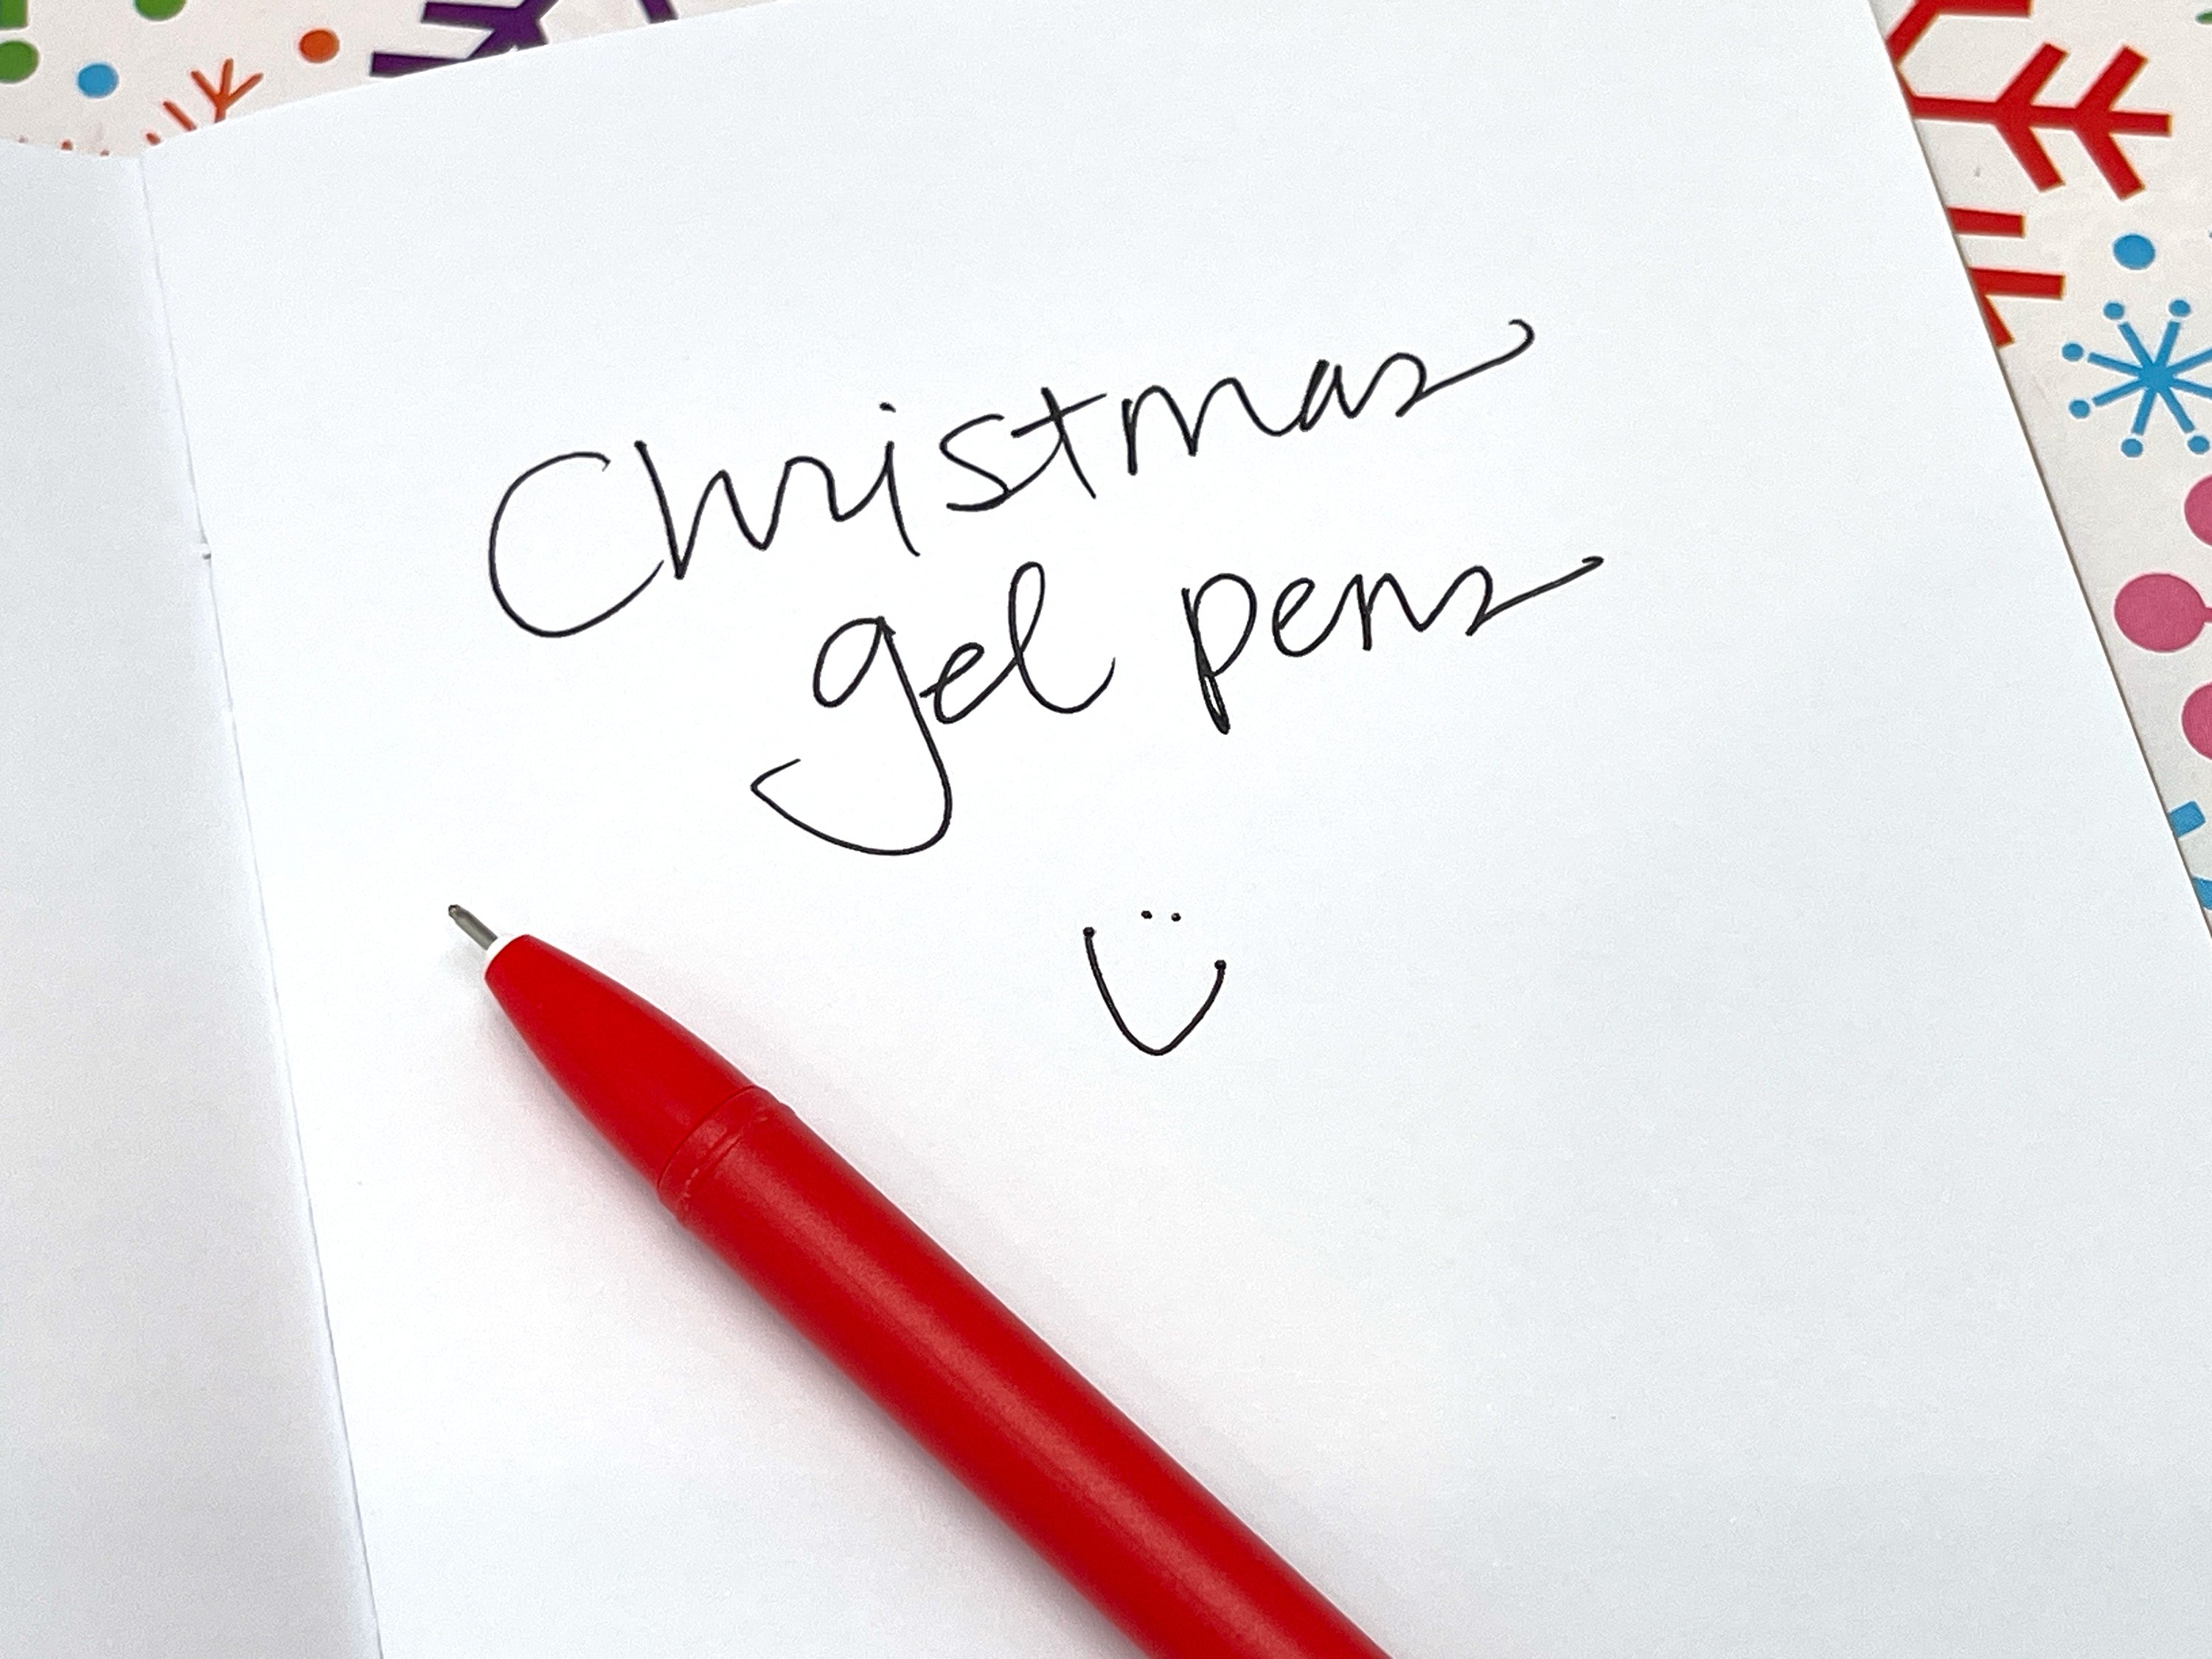 Christmas
gel pens